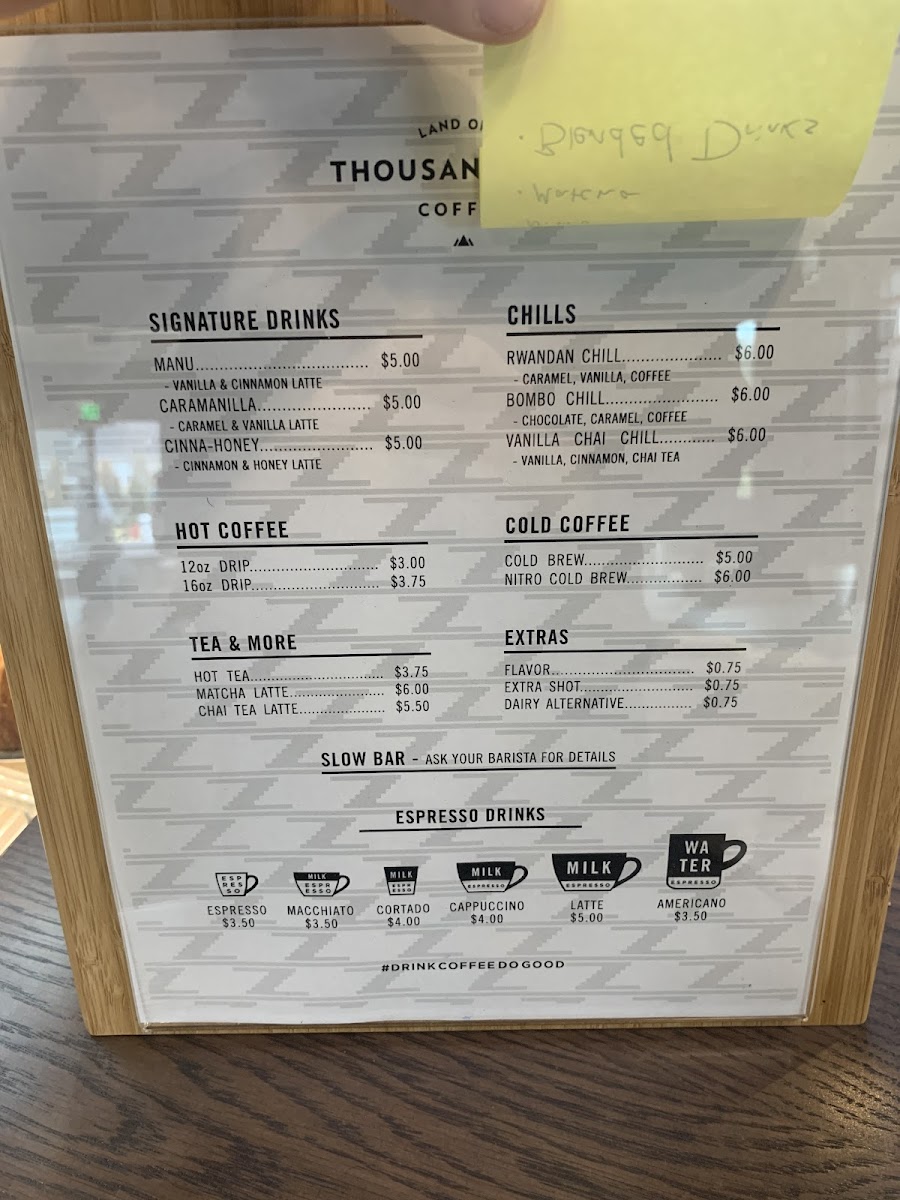 LAND O
THOUSAN
COFF
· Blended Drinks
· Matcha
SIGNATURE DRINKS
MANU.................................. $5.00
- VANILLA & CINNAMON LATTE
CARAMANILLA...................... $5.00
- CARAMEL & VANILLA LATTE
CINNA-HONEY...................... $5.00
- CINNAMON & HONEY LATTE
CHILLS
RWANDAN CHILL.................... $6.00
- CARAMEL, VANILLA, COFFEE
BOMBO CHILL........................ $6.00
- CHOCOLATE, CARAMEL, COFFEE
VANILLA CHAI CHILL............ $6.00
- VANILLA, CINNAMON, CHAI TEA
HOT COFFEE
12oz DRIP............................ $3.00
16oz DRIP............................ $3.75
COLD COFFEE
COLD BREW.......................... $5.00
NITRO COLD BREW................ $6.00
TEA & MORE
HOT TEA.............................. $3.75
MATCHA LATTE...................... $6.00
CHAI TEA LATTE.................... $5.50
EXTRAS
FLAVOR................................ $0.75
EXTRA SHOT.......................... $0.75
DAIRY ALTERNATIVE............... $0.75
SLOW BAR - ASK YOUR BARISTA FOR DETAILS
ESPRESSO DRINKS
ESP
RES
SO
MILK
ESPR
ESSO
MILK
ESPR
ESSO
MILK
ESPRESSO
MILK
ESPRESSO
WA
TER
ESPRESSO
ESPRESSO
$3.50
MACCHIATO
$3.50
CORTADO
$4.00
CAPPUCCINO
$4.00
LATTE
$5.00
AMERICANO
$3.50
#DRINKCOFFEEDOGOOD